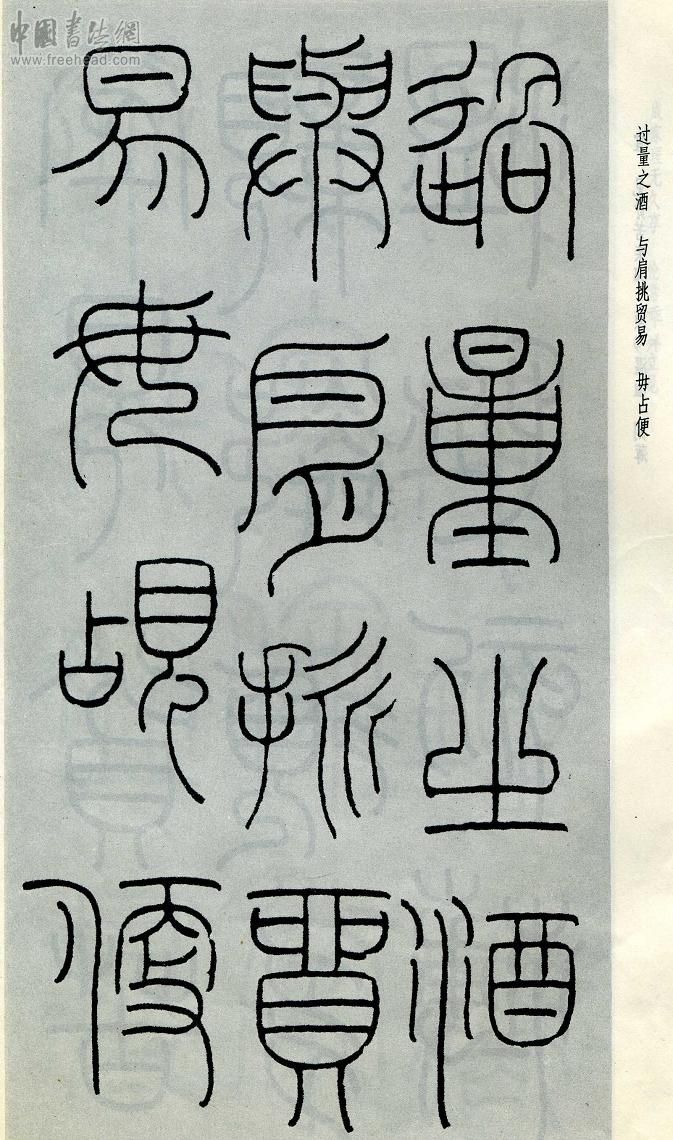 中國書法網
www.freehead.com
过量之酒 与肩挑贸易 毋占便
過量之酒
與肩挑貿
易毋覘便